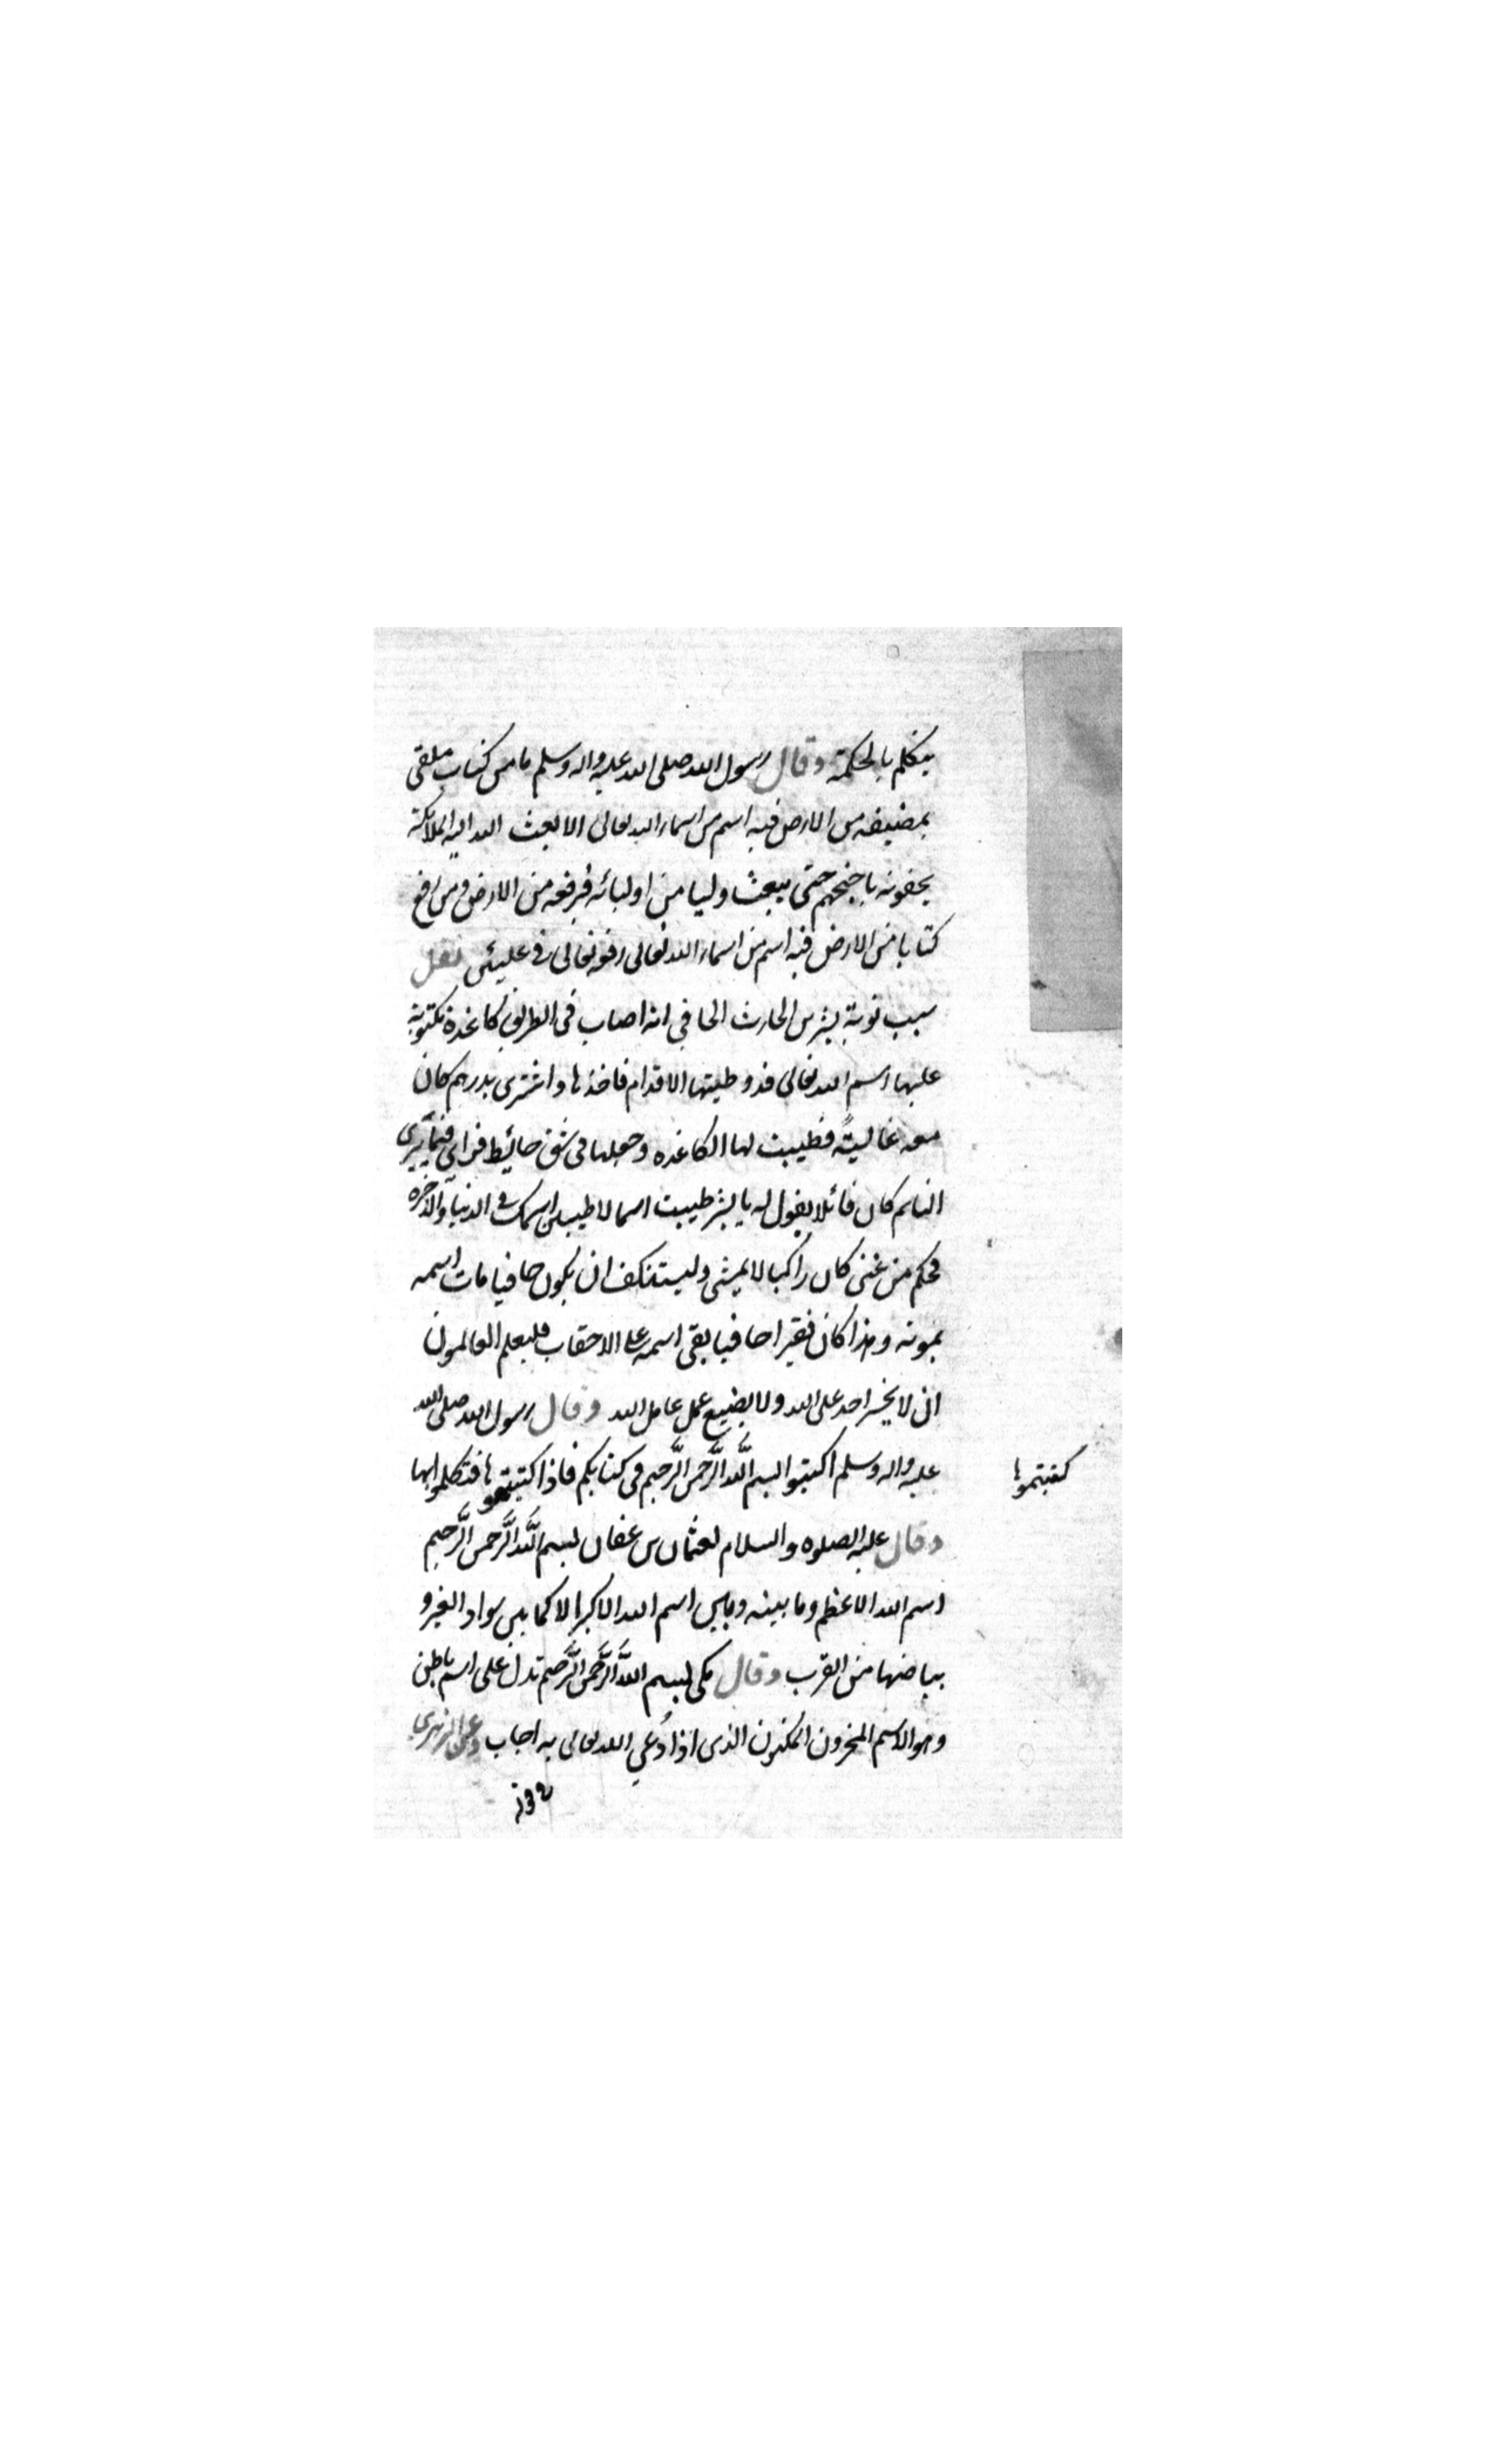 يتكلم بالحكمة وقال رسول الله صلى الله عليه واله وسلم ما من كتاب ملقى
بمضيعه من الارض فيه اسم من اسماء الله تعالى الا بعث الله اليه الملائكة
يحفونه باجنحهم حتى يبعث وليا من اوليائه فيرفعه من الارض ومن رفع
كتابا من الارض فيه اسم من اسماء الله تعالى رفعه تعالى في عليين نقل
سبب توبة بشر بن الحارث الحافي انه اصاب في الطريق كاغدة مكتوبة
عليها اسم الله تعالى قد وطيتها الاقدام فاخذها واشترى بدرهم كان
معه غالية فطيبت لها الكاغده وجعلها في شق حائيط فراى فيما يرى
النائم كان قائلا يقول له يا بشر طيبت اسما لاطيبن اسمك في الدنيا والاخره
فحكم من غنى كان راكبا لا يمشى وليستنكف ان يكون حافيا مات اسمه
بموته وهذا كان فقيرا حافيا بقى اسمه على الاحقاب فليعلم العالمون
ان لا يخسر احد على الله ولا يضيع عمل عامل الله وقال رسول الله صلى الله
عليه واله وسلم اكتبوا بسم اللَّه الرَّحمن الرَّحيم في كتابكم فاذا كتبتموها فتكلموا بها
كتبتموها
وقال عليه الصلوه والسلام لعثمان بن عفان بسم اللَّه الرَّحمن الرَّحيم
اسم الله الاعظم وما بينه وبين اسم الله الاكبر الا كما بين سواد العين و
بياضها من القرب وقال مكى بسم اللَّه الرَّحمن الرَّحيم تدل على اسم باطن
وهو الاسم المخزون المكنون الذى اذا دُعي الله تعالى به اجاب وعن الزهري